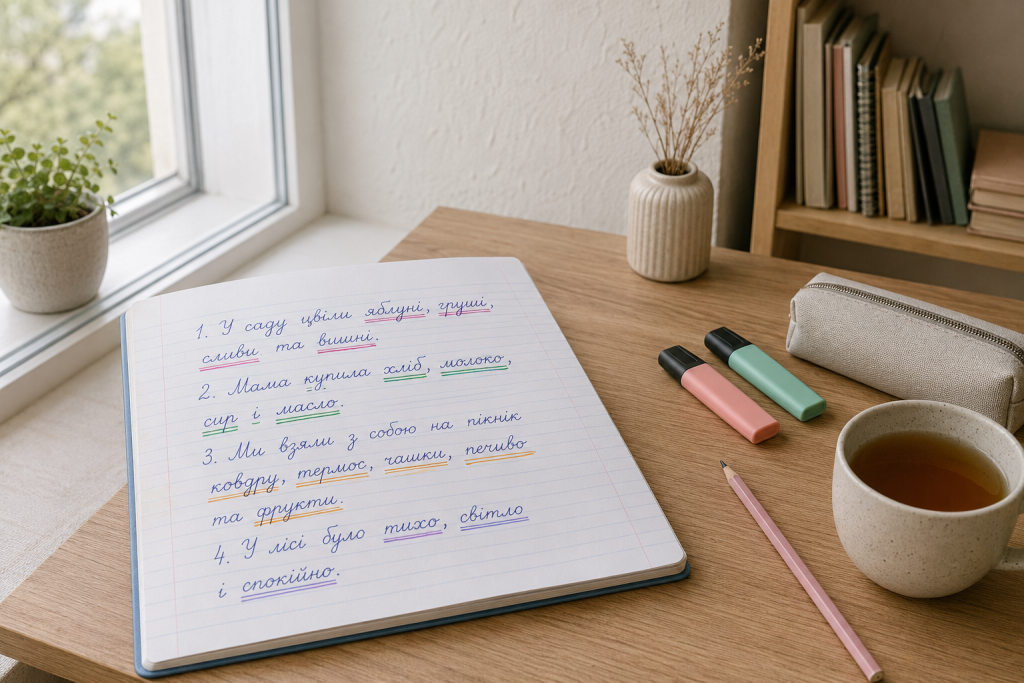 1. У саду цвіли яблуні, груші,
сливи та вишні.
2. Мама купила хліб, молоко,
сир і масло.
3. Ми взяли з собою на пікнік
ковдру, термос, чашки, печиво
та фрукти.
4. У лісі було тихо, світло
і спокійно.